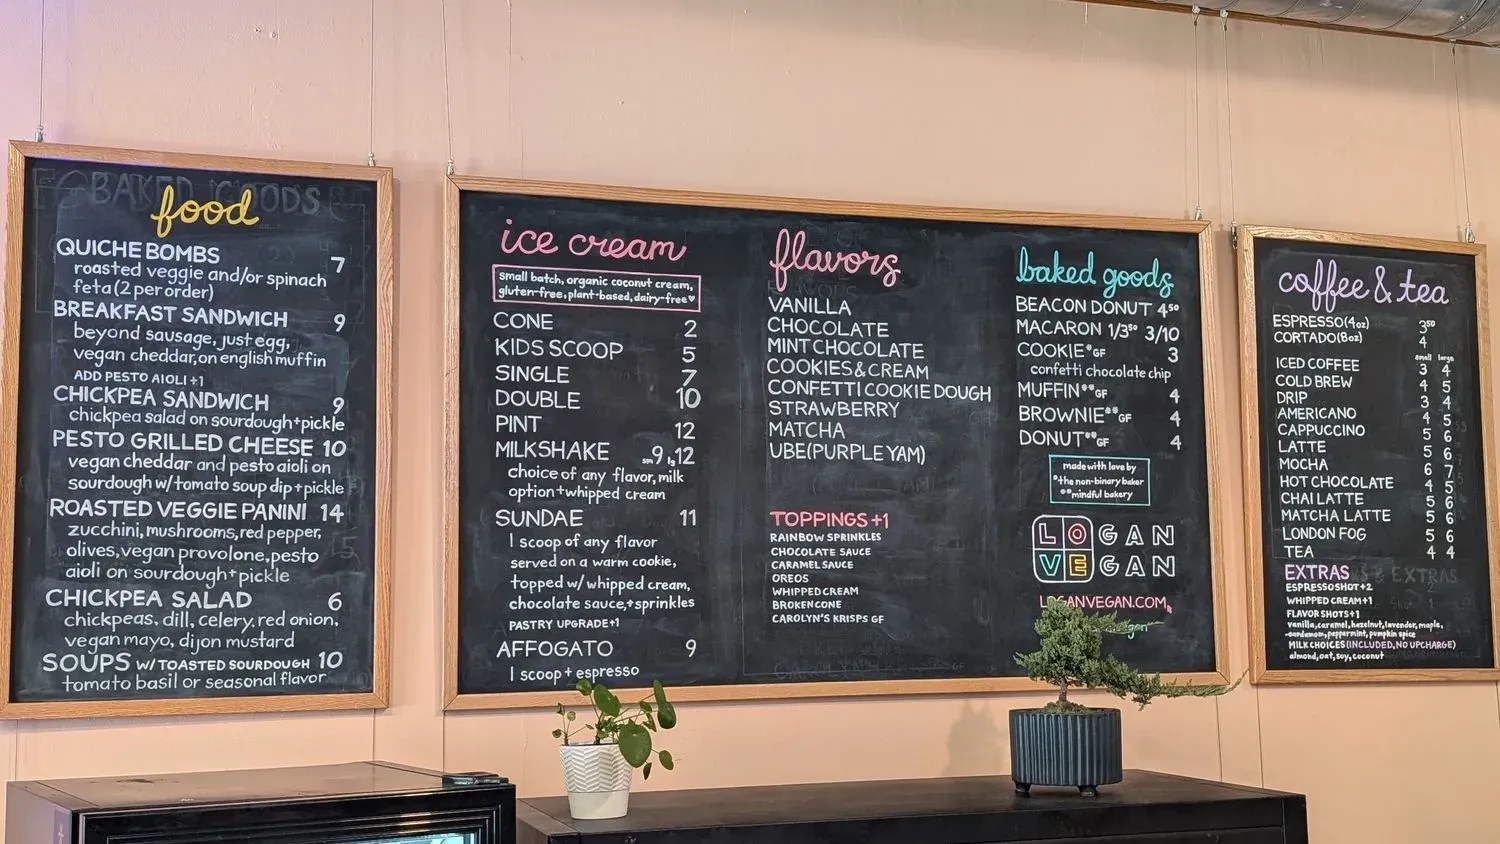 food
QUICHE BOMBS 7
roasted veggie and/or spinach
feta (2 per order)
BREAKFAST SANDWICH 9
beyond sausage, just egg,
vegan cheddar, on english muffin
ADD PESTO AIOLI +1
CHICKPEA SANDWICH 9
chickpea salad on sourdough + pickle
PESTO GRILLED CHEESE 10
vegan cheddar and pesto aioli on
sourdough w/ tomato soup dip + pickle
ROASTED VEGGIE PANINI 14
zucchini, mushrooms, red pepper,
olives, vegan provolone, pesto
aioli on sourdough + pickle
CHICKPEA SALAD 6
chickpeas, dill, celery, red onion,
vegan mayo, dijon mustard
SOUPS W/ TOASTED SOURDOUGH 10
tomato basil or seasonal flavor
ice cream
small batch, organic coconut cream,
gluten-free, plant-based, dairy-free ♥
CONE 2
KIDS SCOOP 5
SINGLE 7
DOUBLE 10
PINT 12
MILKSHAKE sm 9 lg 12
choice of any flavor, milk
option + whipped cream
SUNDAE 11
1 scoop of any flavor
served on a warm cookie,
topped w/ whipped cream,
chocolate sauce, + sprinkles
PASTRY UPGRADE +1
AFFOGATO 9
1 scoop + espresso
flavors
VANILLA
CHOCOLATE
MINT CHOCOLATE
COOKIES & CREAM
CONFETTI COOKIE DOUGH
STRAWBERRY
MATCHA
UBE (PURPLE YAM)
TOPPINGS +1
RAINBOW SPRINKLES
CHOCOLATE SAUCE
CARAMEL SAUCE
OREOS
WHIPPED CREAM
BROKEN CONE
CAROLYN'S KRISPS GF
baked goods
BEACON DONUT 4⁵⁰
MACARON 1/3⁵⁰ 3/10
COOKIE *GF 3
confetti chocolate chip
MUFFIN **GF 4
BROWNIE **GF 4
DONUT **GF 4
made with love by
*the non-binary baker
**mindful bakery
LOGAN
VEGAN
LOGANVEGAN.COM
coffee & tea
ESPRESSO (4oz) 3⁵⁰
CORTADO (8oz) 4
small large
ICED COFFEE 3 4
COLD BREW 4 5
DRIP 3 4
AMERICANO 4 5
CAPPUCCINO 5 6
LATTE 5 6
MOCHA 6 7
HOT CHOCOLATE 4 5
CHAI LATTE 5 6
MATCHA LATTE 5 6
LONDON FOG 5 6
TEA 4 4
EXTRAS
ESPRESSO SHOT +2
WHIPPED CREAM +1
FLAVOR SHOTS +1
vanilla, caramel, hazelnut, lavender, maple,
cardamom, peppermint, pumpkin spice
MILK CHOICES (INCLUDED, NO UPCHARGE)
almond, oat, soy, coconut